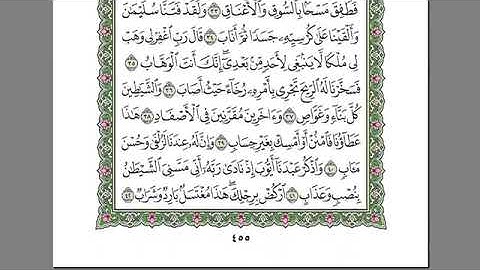 فَطَفِقَ مَسْحًۢا بِٱلسُّوقِ وَٱلْأَعْنَاقِ ٣٣ وَلَقَدْ فَتَنَّا سُلَيْمَٰنَ
وَأَلْقَيْنَا عَلَىٰ كُرْسِيِّهِۦ جَسَدًا ثُمَّ أَنَابَ ٣٤ قَالَ رَبِّ ٱغْفِرْ لِى وَهَبْ
لِى مُلْكًا لَّا يَنۢبَغِى لِأَحَدٍ مِّنۢ بَعْدِىٓ إِنَّكَ أَنتَ ٱلْوَهَّابُ ٣٥
فَسَخَّرْنَا لَهُ ٱلرِّيحَ تَجْرِى بِأَمْرِهِۦ رُخَآءً حَيْثُ أَصَابَ ٣٦ وَٱلشَّيَٰطِينَ
كُلَّ بَنَّآءٍ وَغَوَّاصٍ ٣٧ وَءَاخَرِينَ مُقَرَّنِينَ فِى ٱلْأَصْفَادِ ٣٨ هَٰذَا
عَطَآؤُنَا فَٱمْنُنْ أَوْ أَمْسِكْ بِغَيْرِ حِسَابٍ ٣٩ وَإِنَّ لَهُۥ عِندَنَا لَزُلْفَىٰ وَحُسْنَ
مَـَٔابٍ ٤٠ وَٱذْكُرْ عَبْدَنَآ أَيُّوبَ إِذْ نَادَىٰ رَبَّهُۥٓ أَنِّى مَسَّنِىَ ٱلشَّيْطَٰنُ
بِنُصْبٍ وَعَذَابٍ ٤١ ٱرْكُضْ بِرِجْلِكَ هَٰذَا مُغْتَسَلٌۢ بَارِدٌ وَشَرَابٌ ٤٢
٤٥٥